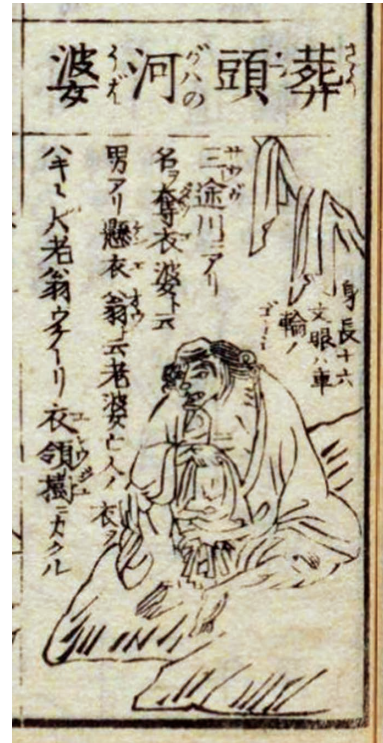 葬頭河婆
身長十六
丈眼ハ車
輪ノ
三途川ニアリ
名ヲ奪衣婆ト云
男アリ懸衣翁ト云老婆亡人ノ衣ヲ
ハキ老翁ウケトリ衣領樹ニカクル